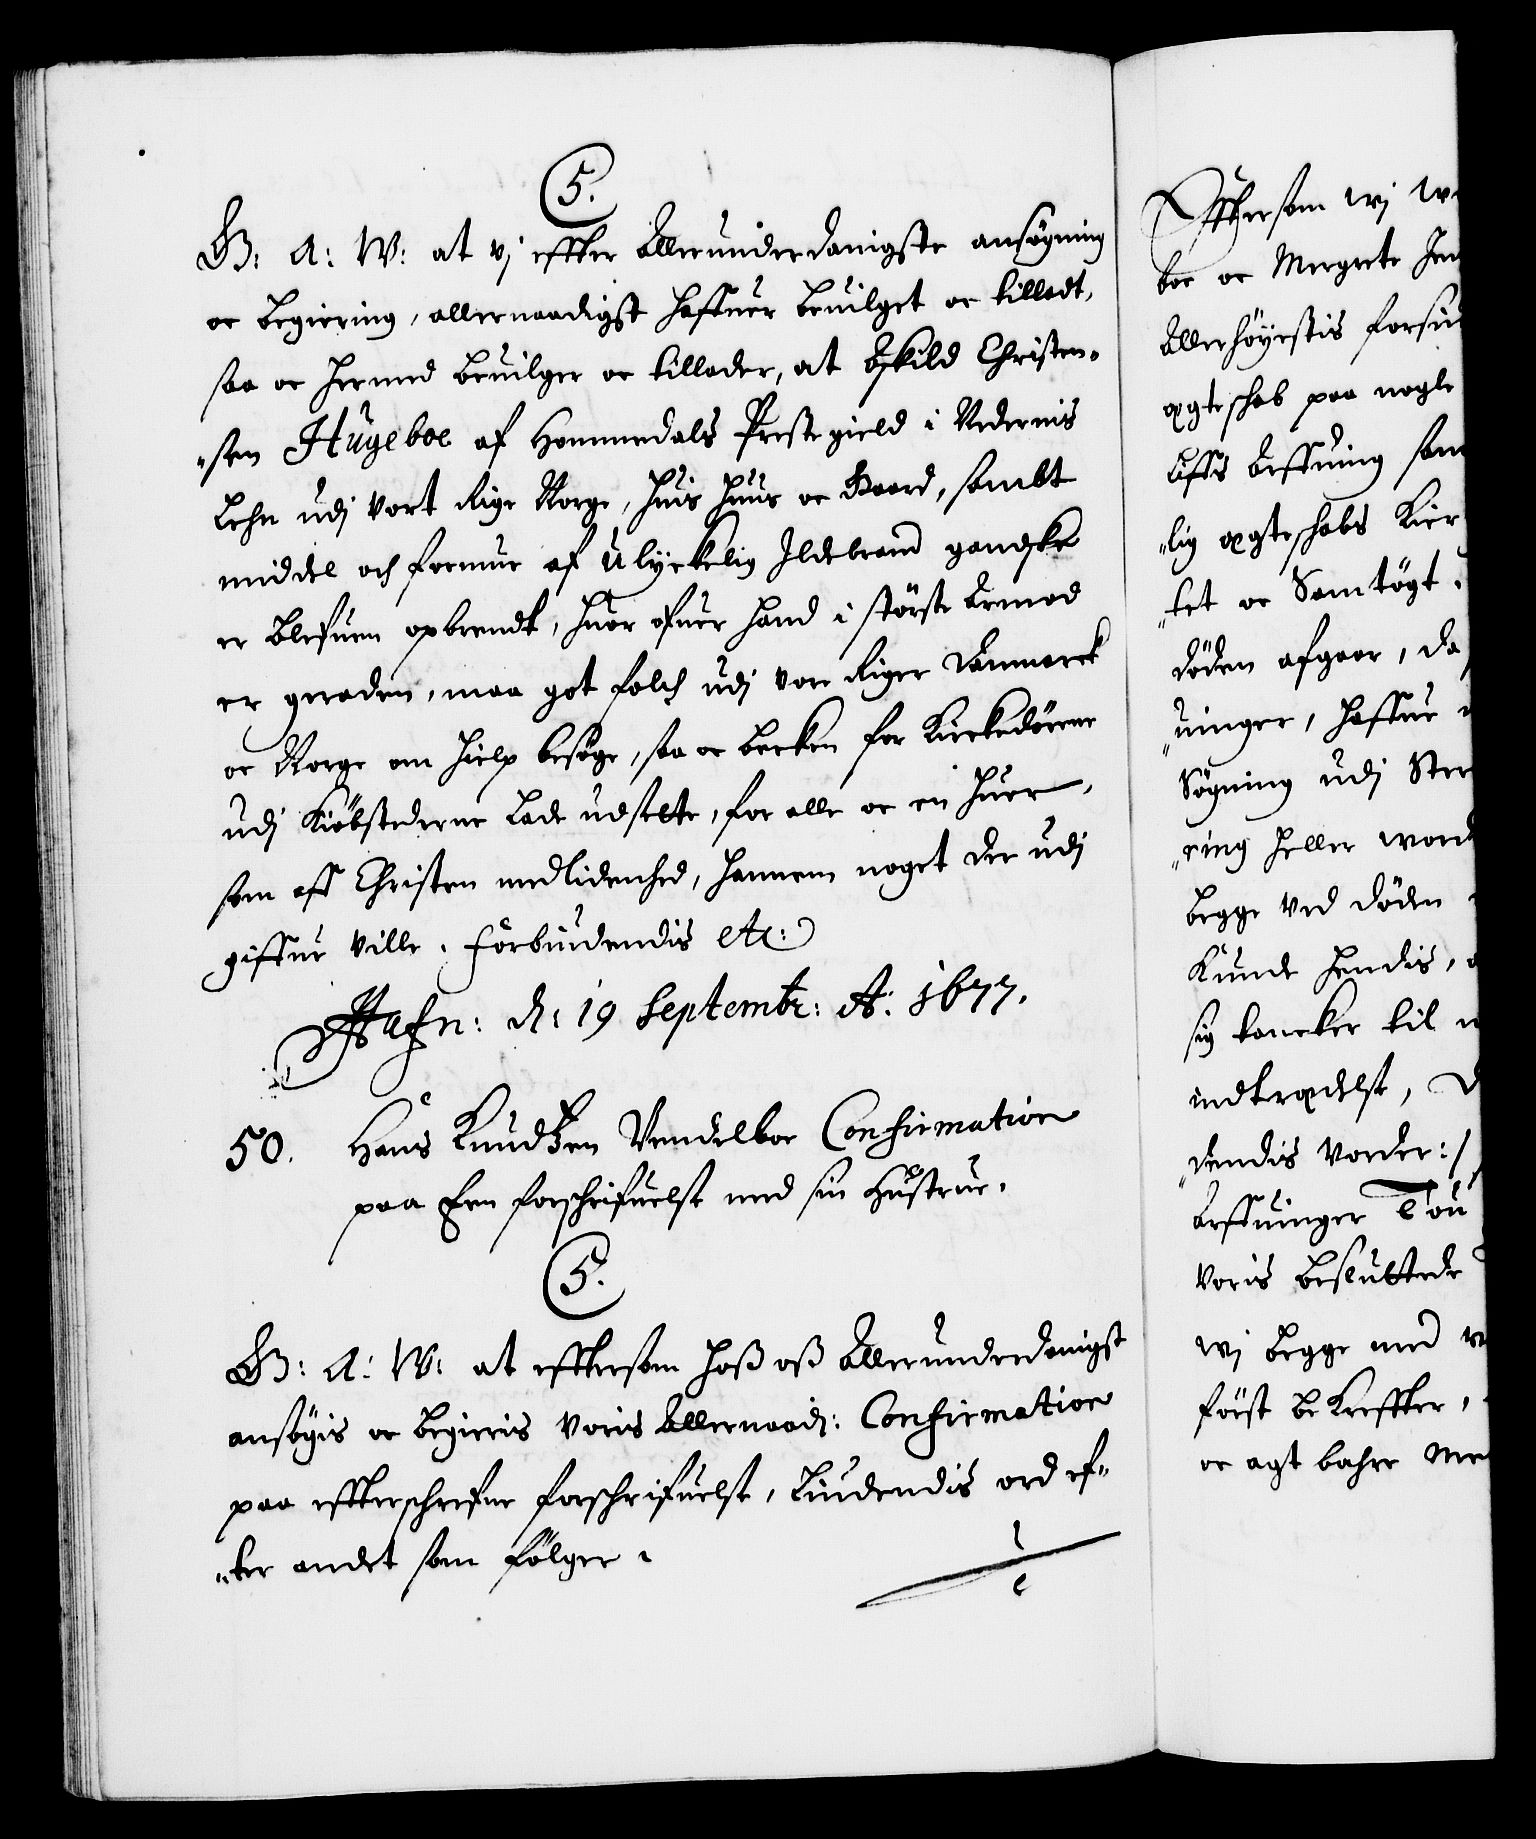 5.
G: A: W: at vj effter Allerunderdanigste ansøgning
oc begiering, allernaadigst haffuer bevilget oc tilladt,
saa oc hermed bevilger oc tillader, at Eskild Christen-
"sen Hugeboe af Hommedals Prestegield i Nedenis
Lehn udj vort Rige Norge, huis Huus oc Gaard, sambt
middel och formue af Ulyckelig Ildebrand gandske
er blefuen opbrendt, huor ofuer hand i störste Armod
er geraden, maa got folch udj vore Riger Danmarck
oc Norge om hielp besøge, saa oc becken for Kirkedörrene
udj Kiöbstederne lade udsette, for alle oc en huer,
som aff Christen medlidenhed, hannem noget der udj
giffue ville. Forbiudendis etc:
Hafn: d: 19 Septembr: A: 1677.
50. Hans Knudtzen Vendelboe Confirmation
paa Een forschrifuelse med sin Hustrue.
5.
G: A: W: at efftersom hoß oß Allerunderdanigst
ansøgis oc begieris voris Allernaad: Confirmation
paa effterschrefne forschrifuelse, Liudendis ord ef-
"ter andet som fölger.
Efftersom wj
boe oc Mergrete
Allerhöyestis
ægteschab paa nogle
Liffs Arffuing
"lig ægteschabs
"tet oc Samtögt
döden afgaar, da
"uinger, haffue
Sögning udj
"ring heller
begge ved döden
Kunde hendis,
sig tancker til
indtrædelse,
"dendis vorder:/
Arffuinger
voris besluttede
wj begge med
först beKreffter,
oc agt bahre